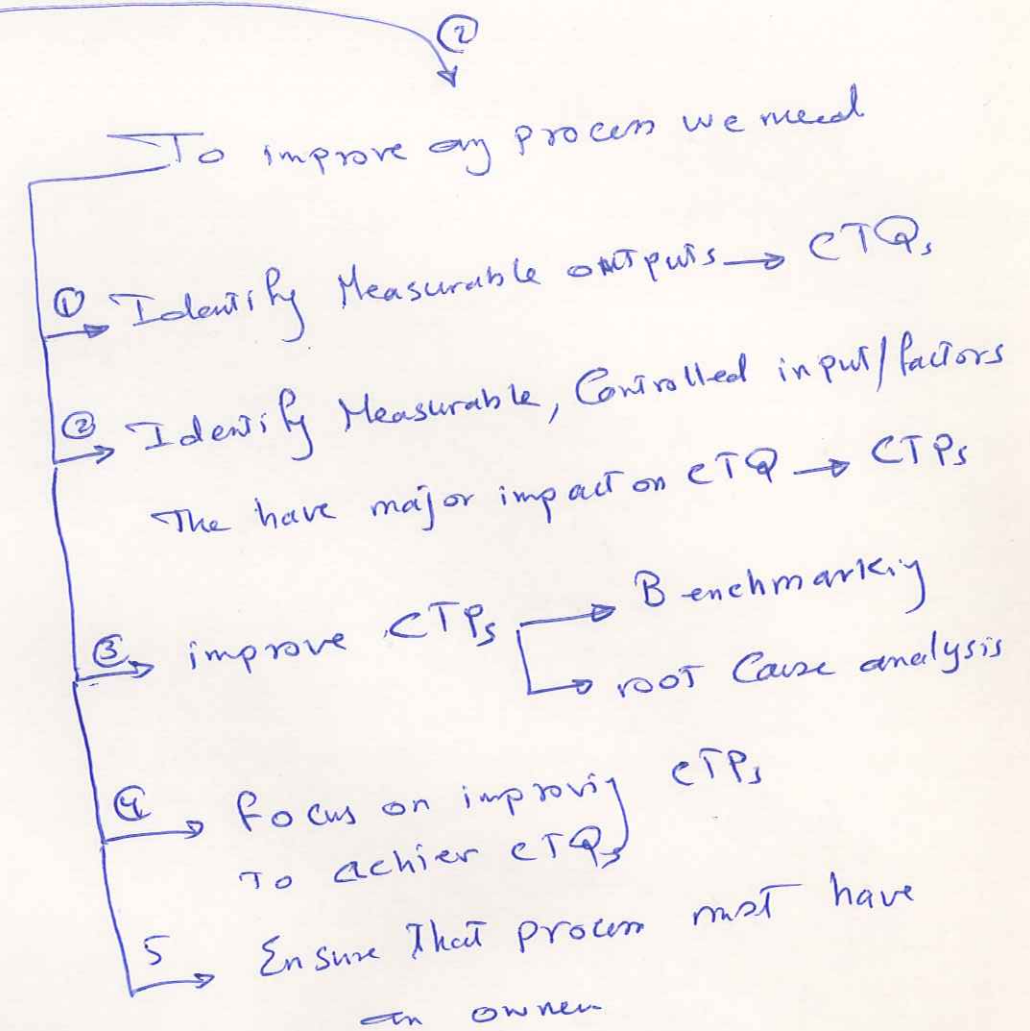 ②
To improve any process we need
① Identify Measurable outputs → CTQs
② Identify Measurable, Controlled input/factors
The have major impact on CTQ → CTPs
③ improve CTPs → Benchmarking
→ root Cause analysis
④ focus on improving CTPs
To achier CTQs
5 Ensure That process must have
an owner